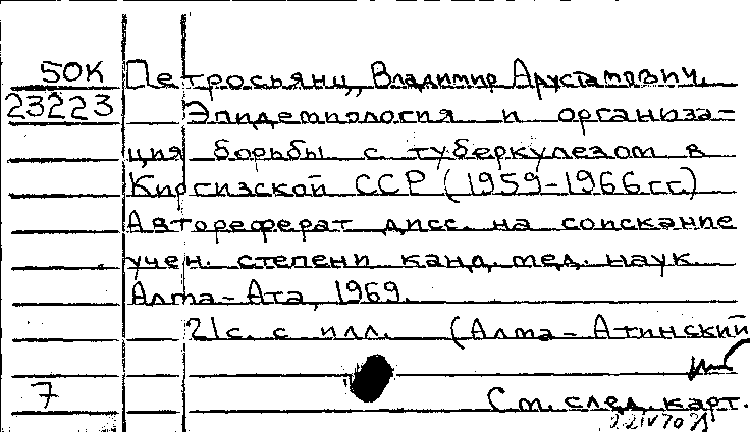 50К Петросьянц, Владимир Арустамович.
23223 Эпидемиология и организа-
ция борьбы с туберкулезом в
Киргизской ССР (1959-1966гг.)
Автореферат дисс. на соискание
учен. степени канд. мед. наук.
Алма-Ата, 1969.
21с. с илл. (Алма-Атинский
7 См. след. карт.